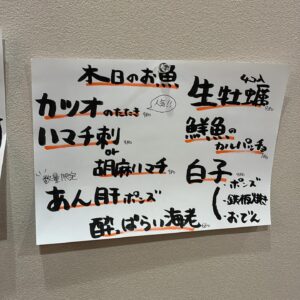 本日のお魚
カツオのたたき
人気!!
ハマチ刺
or
胡麻ハマチ
数量限定
あん肝ポンズ
酔っぱらい海老
生牡蠣
鮮魚の
カルパッチョ
白子
・ポンズ
・鉄板焼き
・おでん